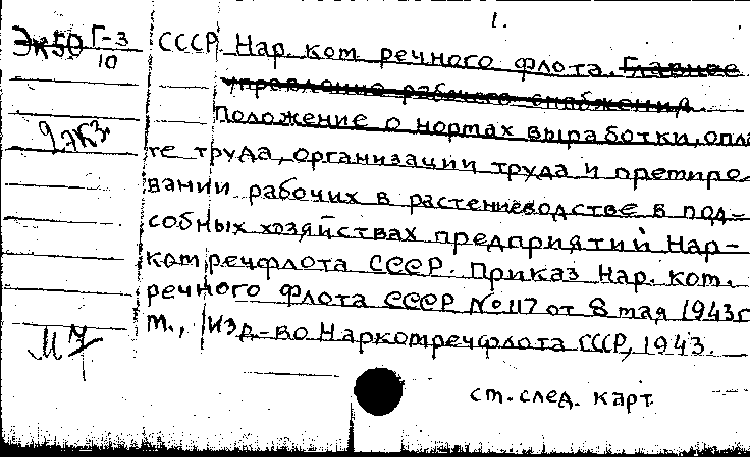 1.
Эк50 Г-3/10 СССР. Нар. ком речного флота. Главное
управление рабочего снабжения.
Положение о нормах выработки, опла
2эк3
те труда, организации труда и премиро-
вании рабочих в растениеводстве в под-
собных хозяйствах предприятий Нар-
комречфлота СССР. Приказ Нар. ком.
речного флота СССР № 117 от 8 мая 1943г
М., Изд-во Наркомречфлота СССР, 1943.
ст. след. карт